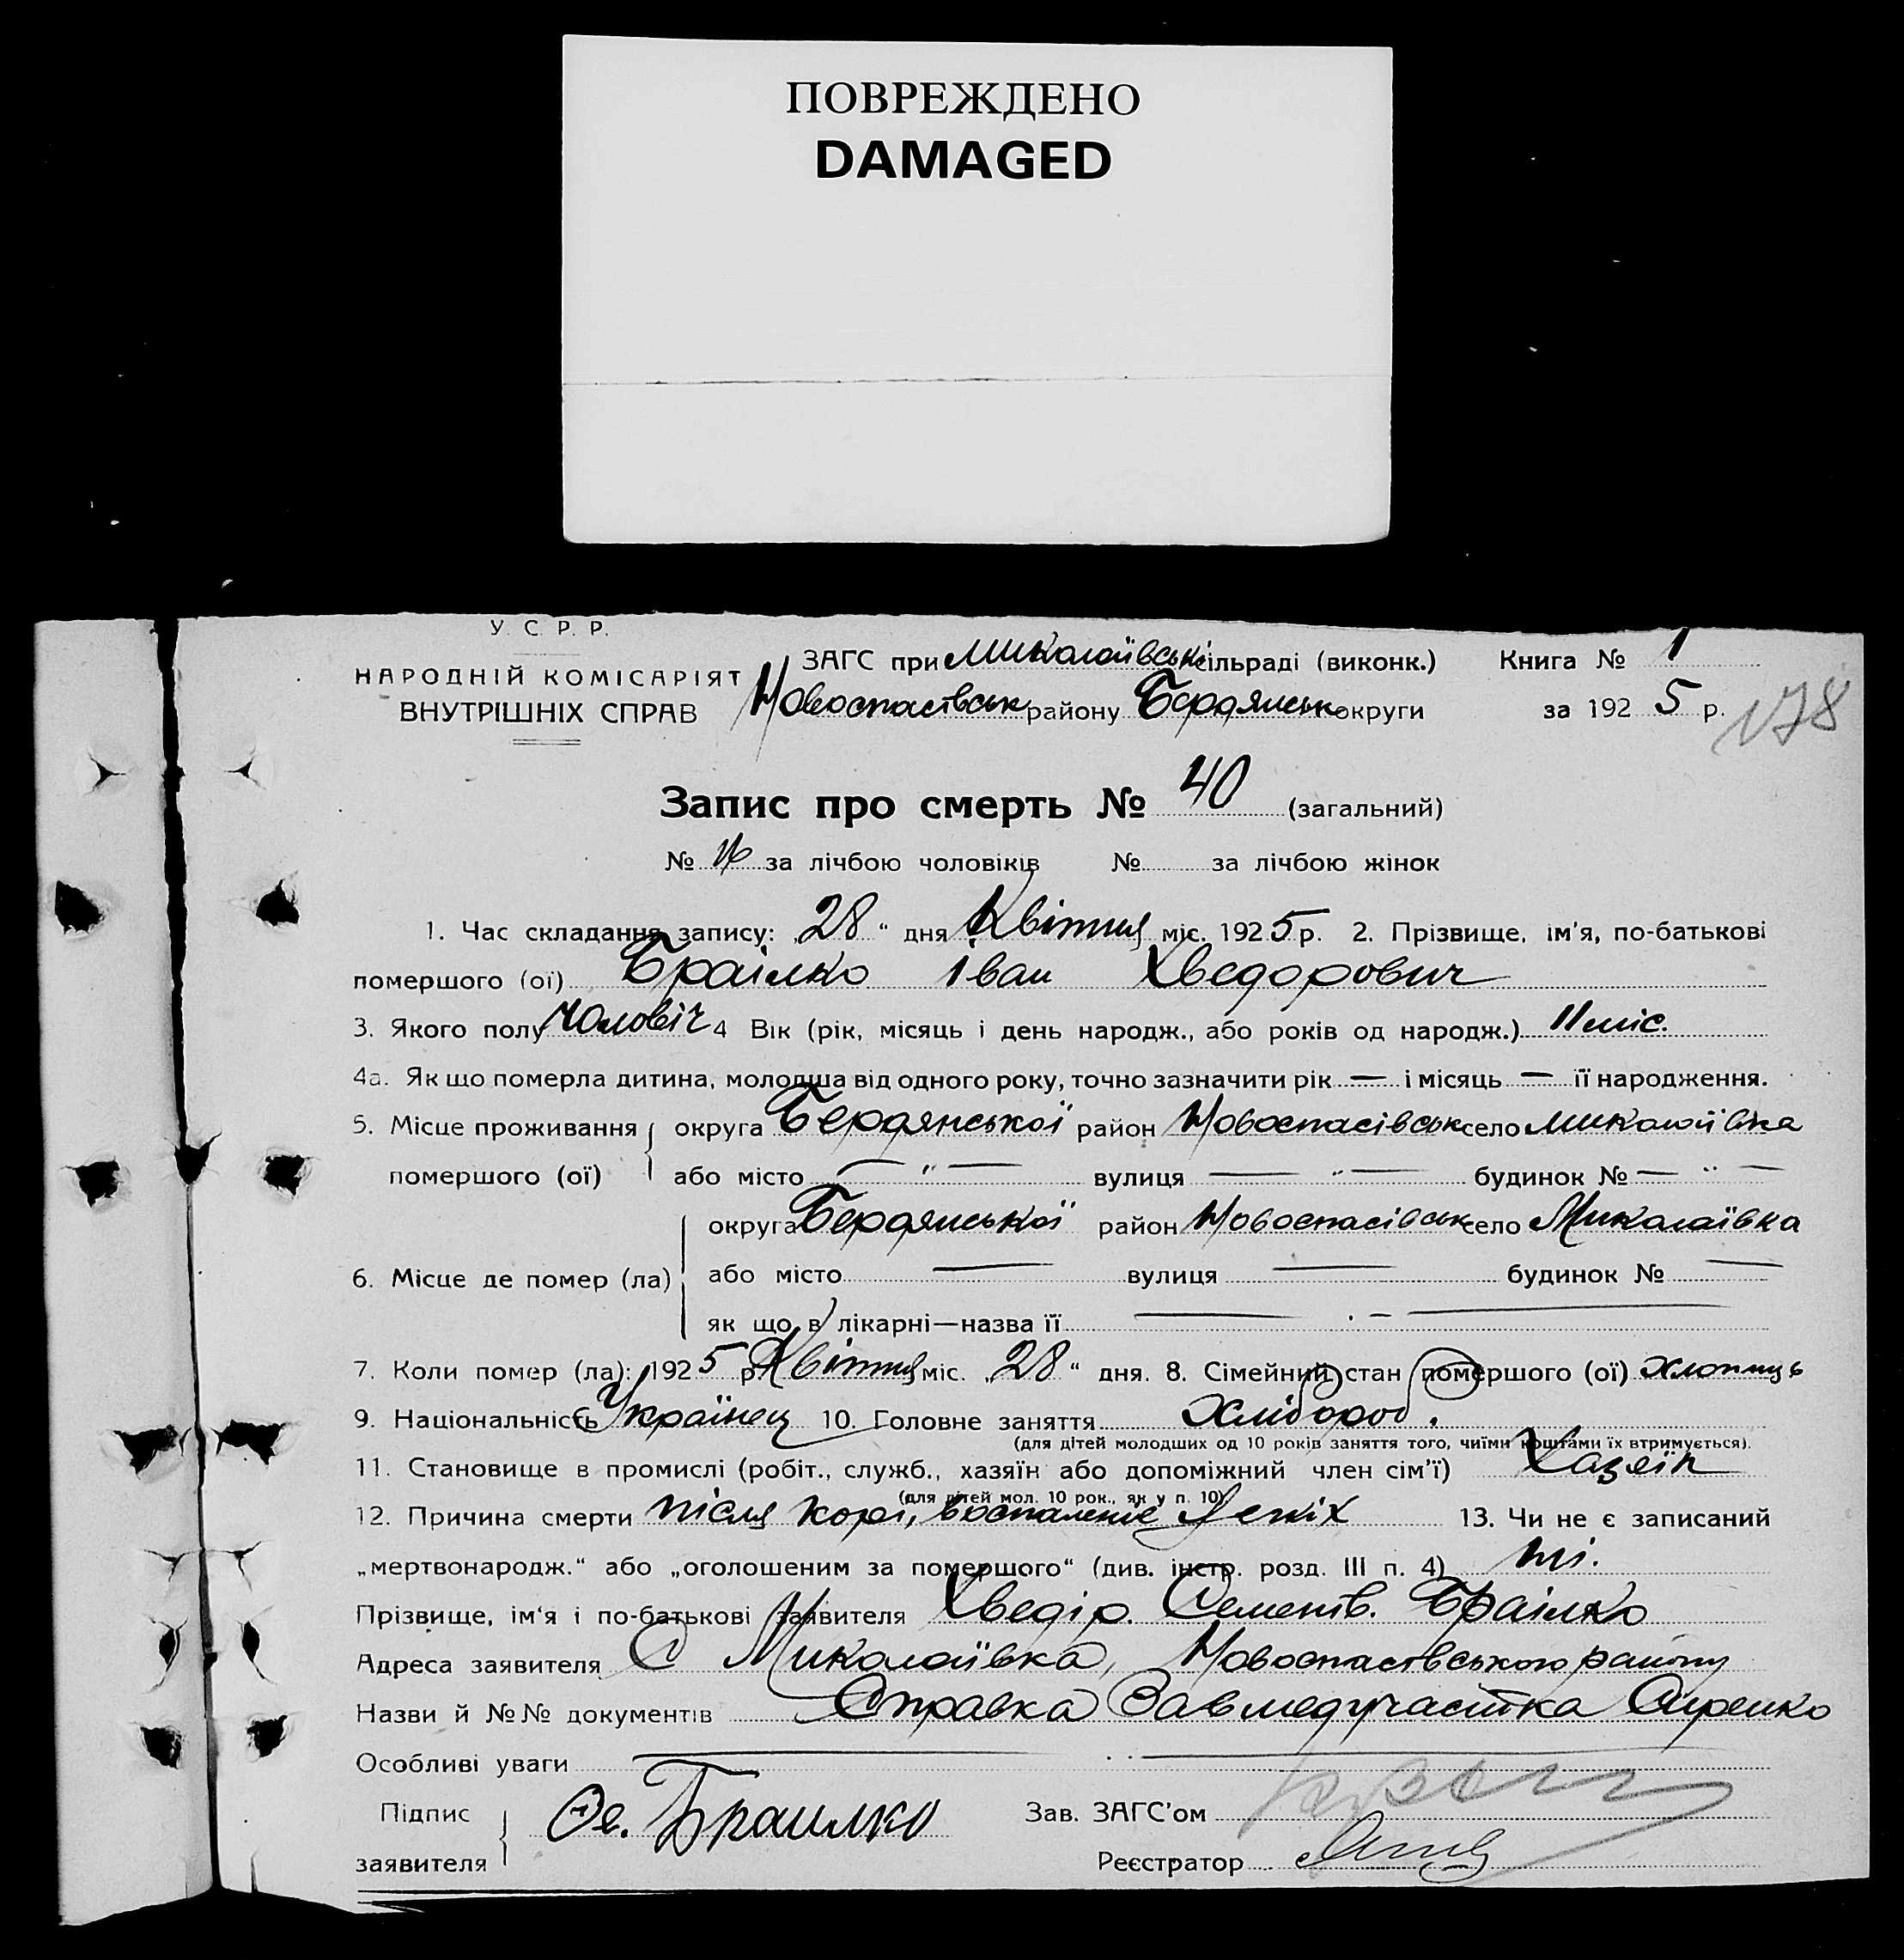 ПОВРЕЖДЕНО
DAMAGED
У. С. Р. Р.
НАРОДНІЙ КОМІСАРІЯТ
ВНУТРІШНІХ СПРАВ
ЗАГС при Миколаївськ сільраді (виконк.) Книга № 1
Новоспасівськ району Бердянськ округи за 1925 р.
178
Запис про смерть № 40 (загальний)
№ за лічбою чоловіків № за лічбою жінок
1. Час складання запису: „28“ дня Квітня міс. 1925 р. 2. Прізвище, ім'я, по-батькові
помершого (ої) Браілко Іван Хведорович
3. Якого полу Чоловіч 4 Вік (рік, місяць і день народж., або років од народж.) 11 міс.
4а. Як що померла дитина, молодша від одного року, точно зазначити рік — і місяць — її народження.
5. Місце проживання округа Бердянської район Новоспасівськ село Миколаївка
помершого (ої) або місто — " — вулиця — " — будинок № — " —
округа Бердянської район Новоспасівськ село Миколаївка
6. Місце де помер (ла) або місто — вулиця — будинок № —
як що в лікарні—назва її — . —
7. Коли помер (ла): 1925 р. Квітня міс. „28“ дня. 8. Сімейний стан помершого (ої) хлопець
9. Національність Українец 10. Головне заняття Хлібороб.
(для дітей молодших од 10 років заняття того, чиїми коштами їх втримується).
11. Становище в промислі (робіт., служб., хазяїн або допоміжний член сім'ї) Хазяїн
(для дітей мол. 10 рок., як у п. 10)
12. Причина смерти після корі, воспаленіе Легкіх 13. Чи не є записаний
„мертвонародж.“ або „оголошеним за помершого“ (див. інстр. розд. III п. 4) ні.
Прізвище, ім'я і по-батькові заявителя Хведір. Семенів. Браілко
Адреса заявителя С Миколаївка, Новоспасівського району
Назви й №№ документів Справка Завмедучастка
Особливі уваги — . . —
Підпис заявителя Фе. Браилко Зав. ЗАГС'ом
Реєстратор